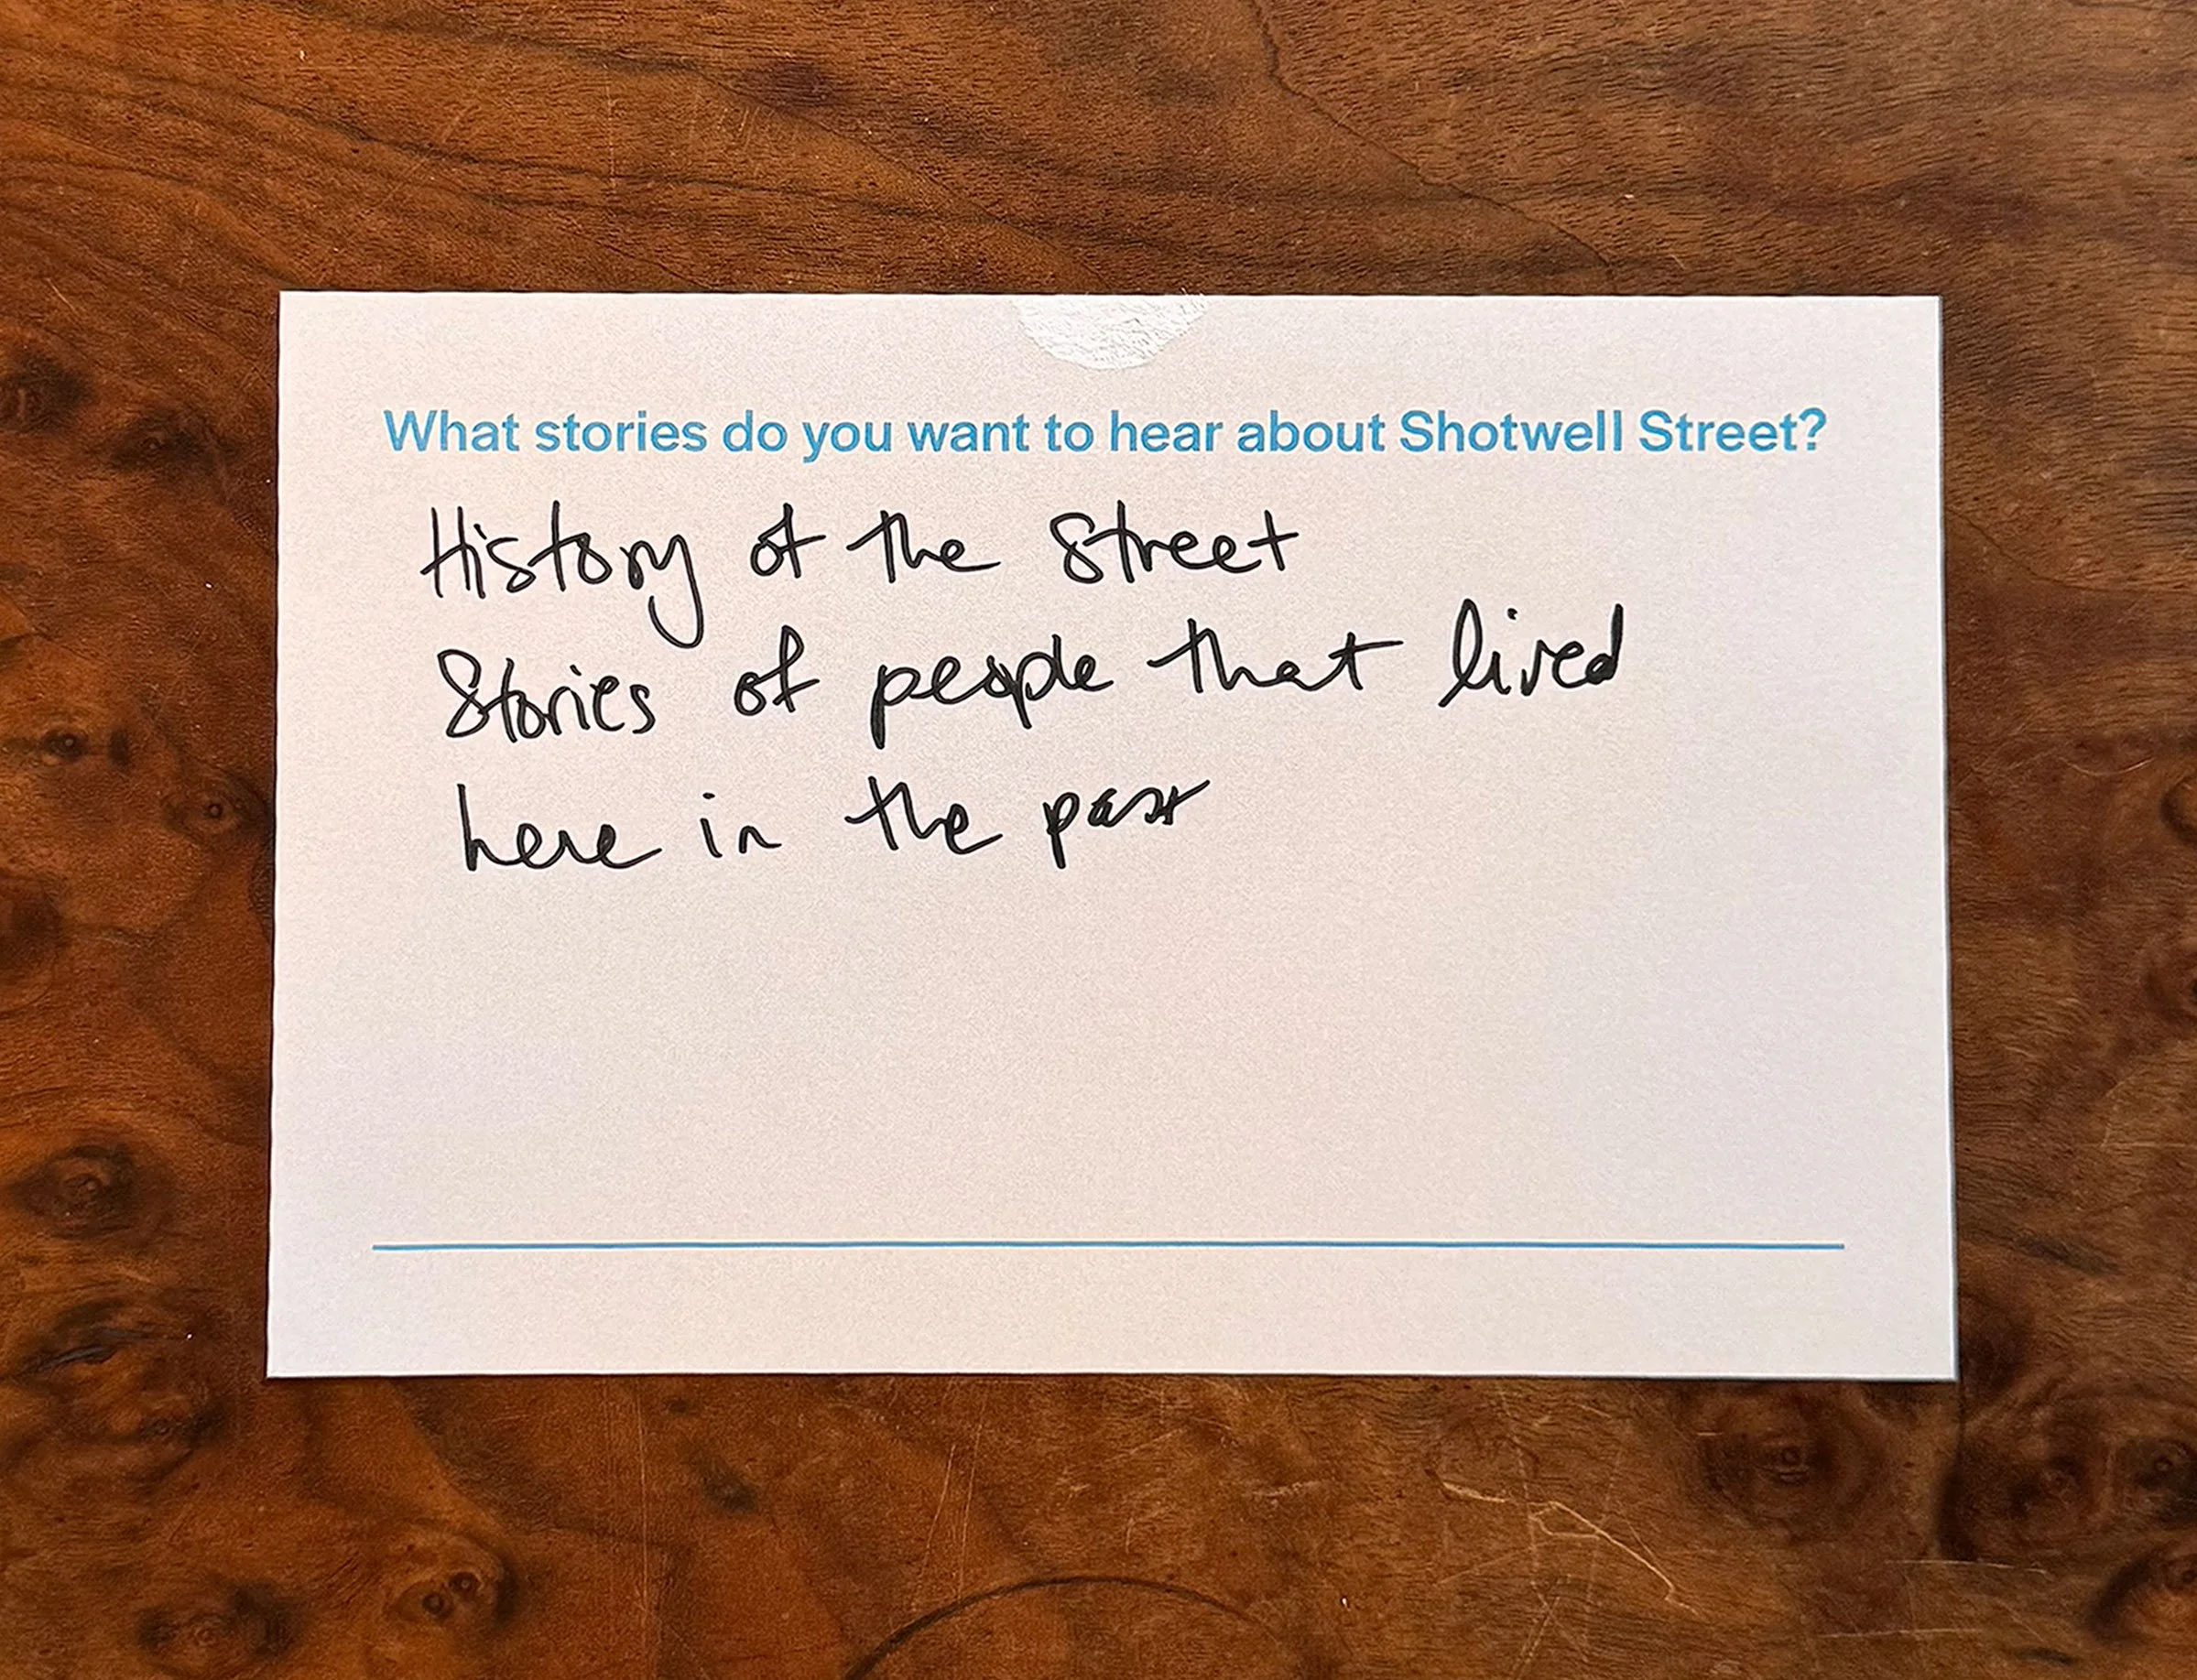 What stories do you want to hear about Shotwell Street?
History of the Street
Stories of people that lived
here in the past